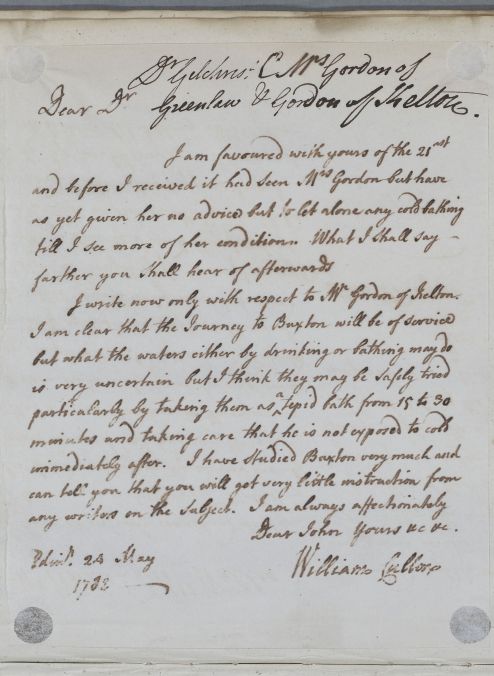 Dr Gilchrist C Mrs Gordon of
Greenlaw & Gordon of Kelton.
Dear Dr
I am favoured with yours of the 21st
and before I received it had seen Mrs Gordon but have
as yet given her no advice but to let alone any cold bathing
till I see more of her condition. What I shall say
farther you shall hear of afterwards
I write now only with respect to Mr Gordon of Kelton.
I am clear that the Journey to Buxton will be of service
but what the waters either by drinking or bathing may do
is very uncertain but I think they may be safely tried
particularly by taking them as a tepid bath from 15 to 30
minutes and taking care that he is not exposed to cold
immediately after. I have studied Buxton very much and
can tell you that you will get very little instruction from
any writers on the Subject. I am always affectionately
Dear John Yours &c &c.
William Cullen
Edinr. 24 May